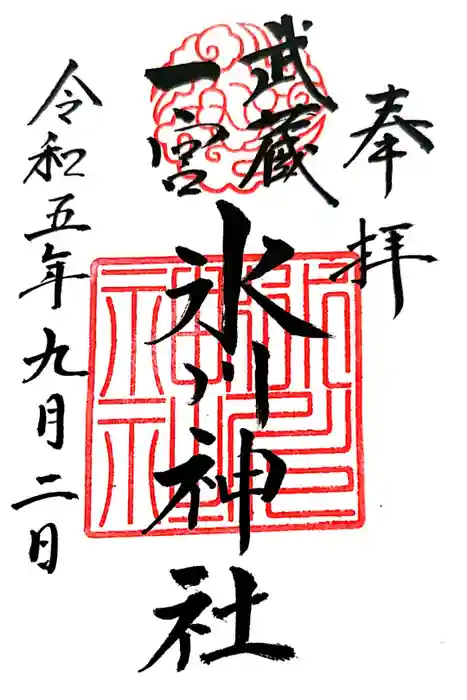 奉拝
武蔵
一宮
氷川神社
令和五年九月二日